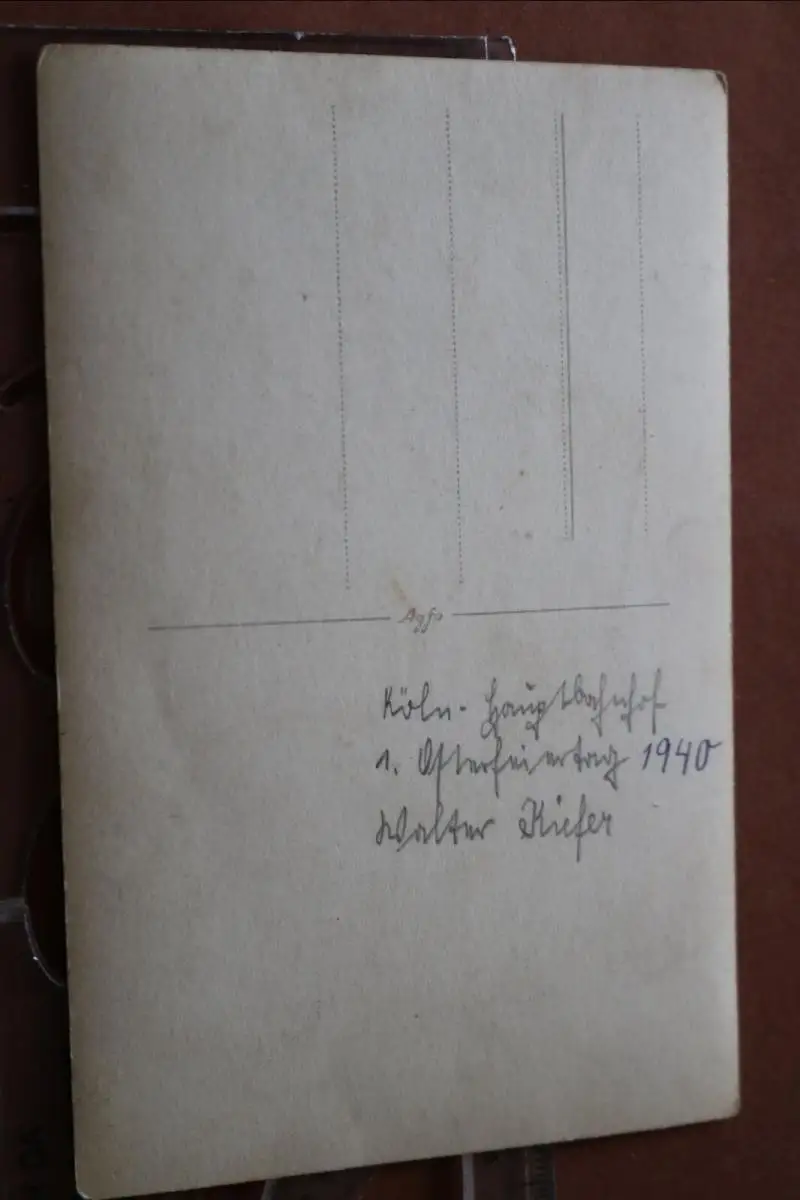 Agfa
Köln - Hauptbahnhof
1. Osterfeiertag 1940
Walter Kiefer